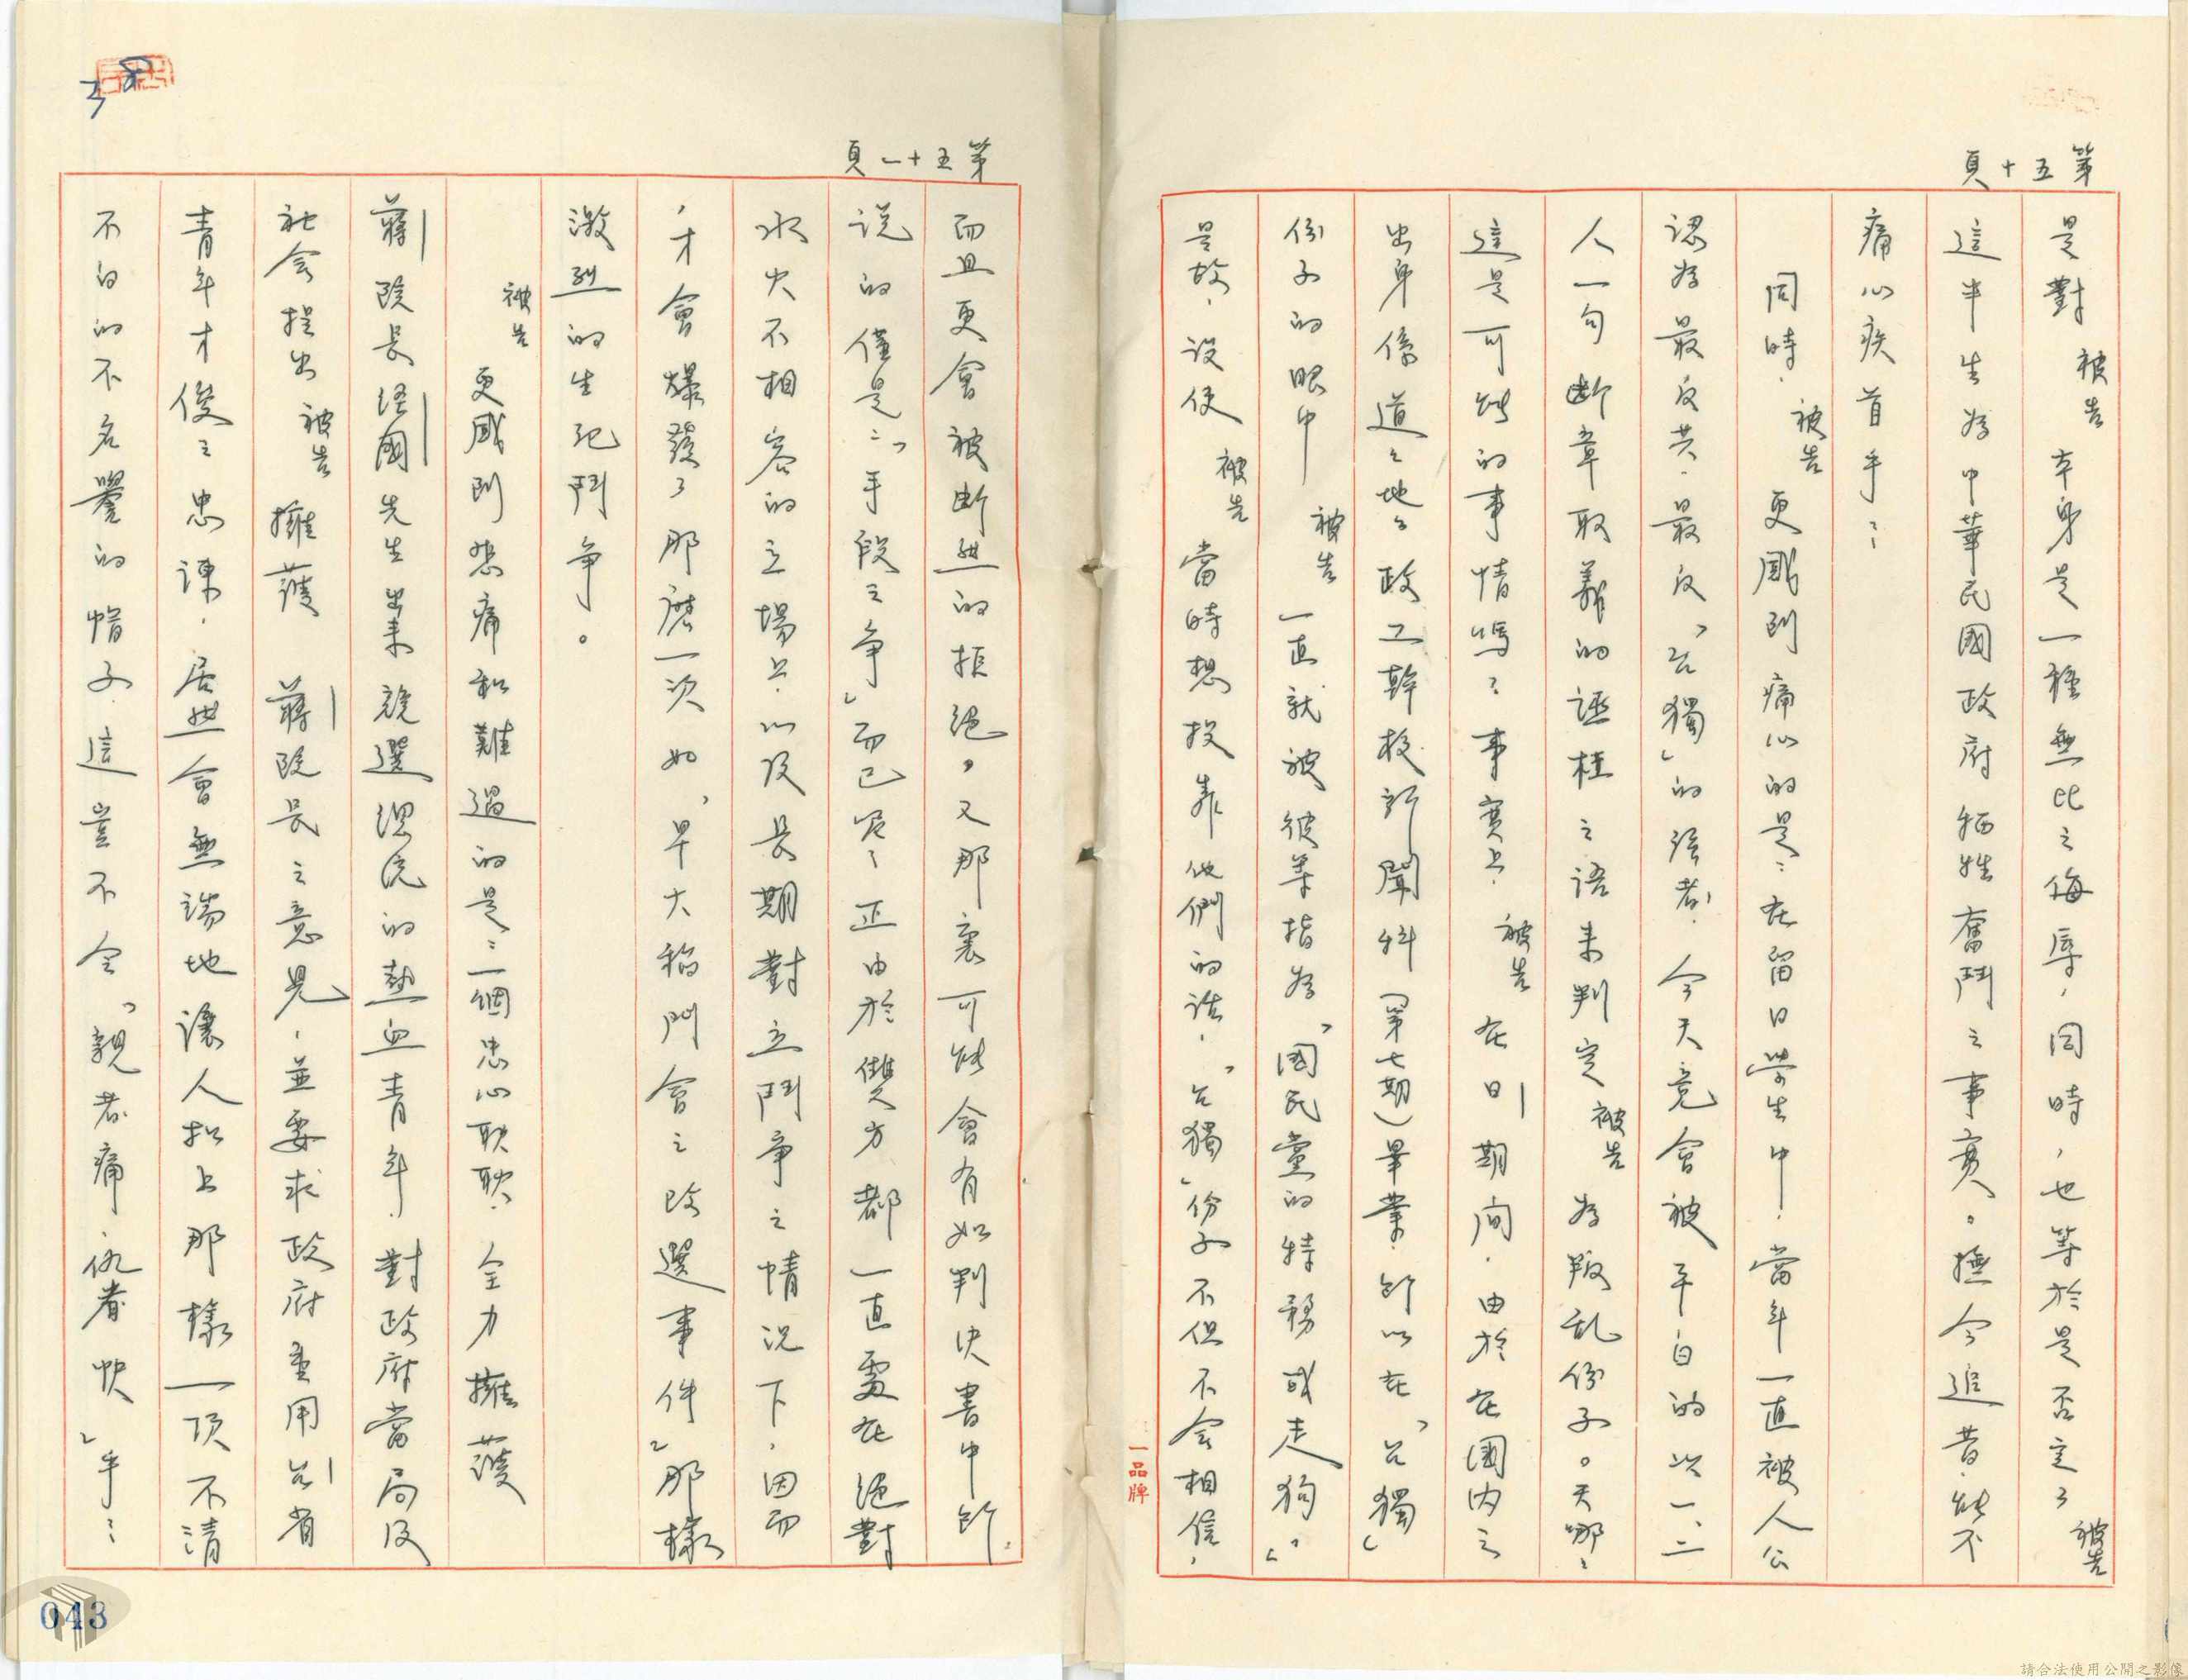 第五十頁
是對被告本身是一種無比之侮辱，同時，也等於是否定了被告
這半生為中華民國政府牺牲奮鬥之事實。撫今追昔，能不
痛心疾首乎？
同時，被告更感到痛心的是：在留日學生中，當年一直被人公
認為最反共，最反「台獨」的強者，今天竟會被平白的以一、二
人一句断章取義的誣枉之語来判定被告為叛乱份子。天哪！
這是可能的事情嗎？事實上，被告在日期间，由於在國内之
出身係道道地地政工幹校新聞科（第七期）畢業，所以在「台獨」
份子的眼中被告一直就被彼等指為「國民黨的特務或走狗」。
是故，设使被告當時想投靠他們的話，「台獨」份子不但不会相信，
一品牌
第五十一頁
而且更會被断然的拒絕，又那裏可能會有如判决書中所
说的僅是「手段之争」而已呢？正由於雙方都一直處在絕對
水火不相容的立場上，以及長期對立鬥争之情況下，因而
，才會爆發了那麼一次如「早大稻門會之改選事件」那樣
激烈的生死鬥争。
被告更感到悲痛和難過的是：一個忠心耿耿，全力擁護
蔣院長經國先生出来競選總统的熱血青年，對政府當局及
社会提出被告擁護蔣院長之意見，並要求政府重用台省
青年才俊之忠諫，居然會無端地讓人扣上那樣一顶不清
不白的不名譽的帽子，這豈不令「親者痛，仇者快」乎？
043
請合法使用公開之影像